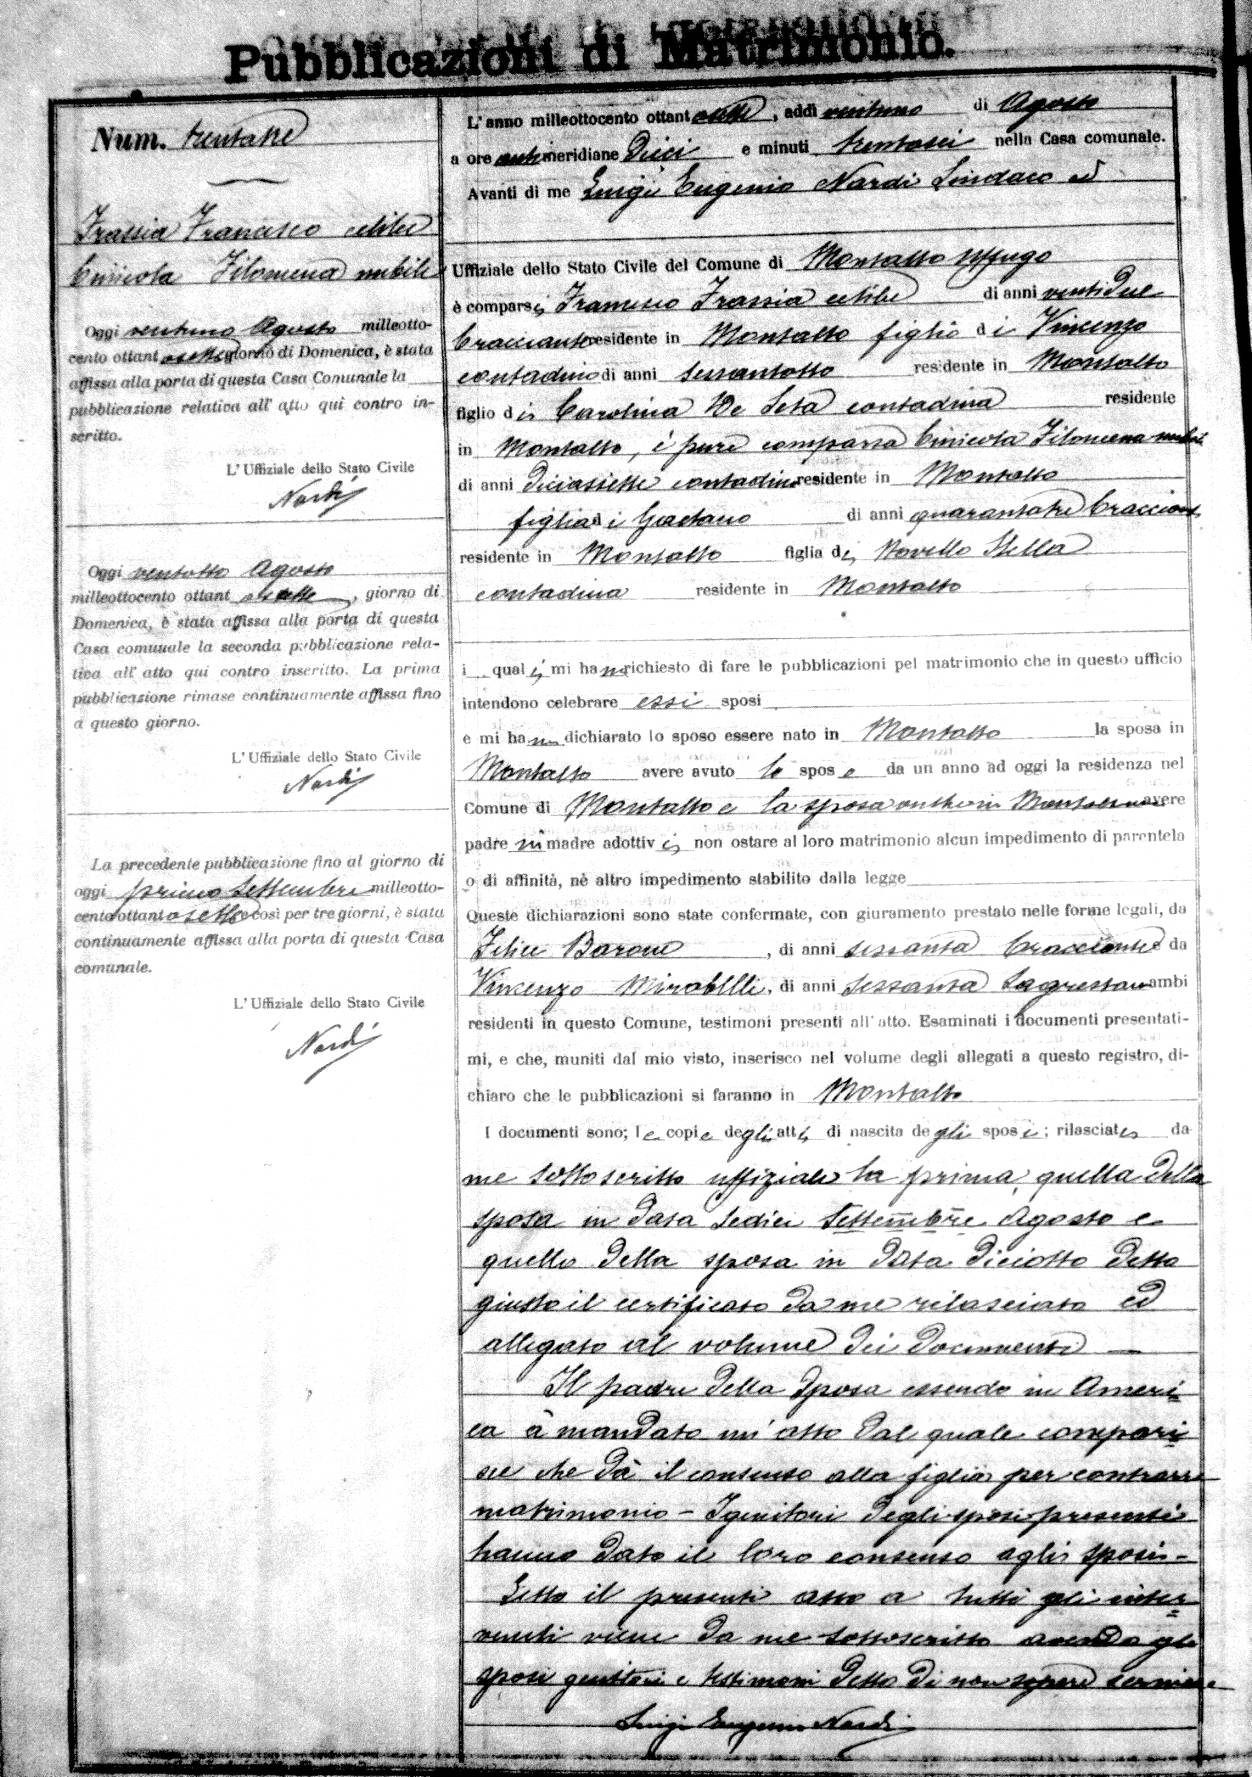 Pubblicazioni di Matrimonio.
Num. trentatre
Frassia Francesco celibe
Cinicola Filomena nubile
Oggi ventuno Agosto milleotto-
cento ottant asette giorno di Domenica, è stata
affissa alla porta di questa Casa Comunale la
pubblicazione relativa all' atto qui contro in-
scritto.
L' Uffiziale dello Stato Civile
Nardi
Oggi ventotto Agosto
milleottocento ottant asette, giorno di
Domenica, è stata affissa alla porta di questa
Casa comunale la seconda pubblicazione rela-
tiva all' atto qui contro inscritto. La prima
pubblicazione rimase continuamente affissa fino
a questo giorno.
L' Uffiziale dello Stato Civile
Nardi
La precedente pubblicazione fino al giorno di
oggi primo Settembre milleotto-
cento ottant asette e così per tre giorni, è stata
continuamente affissa alla porta di questa Casa
comunale.
L' Uffiziale dello Stato Civile
Nardi
L' anno milleottocento ottant asette, addì ventuno di Agosto
a ore antimeridiane Dieci e minuti trentasei nella Casa comunale.
Avanti di me Luigi Eugenio Nardi Sindaco ed
Uffiziale dello Stato Civile del Comune di Montalto Uffugo
è comparsi Francesco Frassia celibe di anni ventidue
bracciante residente in Montalto figlio di Vincenzo
contadino di anni sessantotto residente in Montalto
figlio di Carolina De Seta contadina residente
in Montalto, è pure comparsa Cinicola Filomena nubile
di anni diciassette contadina residente in Montalto
figlia di Gaetano di anni quarantatre bracciante
residente in Montalto figlia di Novello Stella
contadina residente in Montalto
i quali mi hanno richiesto di fare le pubblicazioni pel matrimonio che in questo ufficio
intendono celebrare essi sposi
e mi hanno dichiarato lo sposo essere nato in Montalto la sposa in
Montalto avere avuto lo sposo da un anno ad oggi la residenza nel
Comune di Montalto e la sposa anche in Montalto avere
padre ni madre adottivi, non ostare al loro matrimonio alcun impedimento di parentela
o di affinità, nè altro impedimento stabilito dalla legge
Queste dichiarazioni sono state confermate, con giuramento prestato nelle forme legali, da
Felice Barone, di anni sessanta bracciante e da
Vincenzo Mirabelli, di anni sessanta Sagrestano ambi
residenti in questo Comune, testimoni presenti all' atto. Esaminati i documenti presentati-
mi, e che, muniti dal mio visto, inserisco nel volume degli allegati a questo registro, di-
chiaro che le pubblicazioni si faranno in Montalto
I documenti sono; le copie degli atti di nascita degli sposi; rilasciate da
me sottoscritto uffiziale la prima, quella della
sposa in data sedici Settembre Agosto e
quello della sposa in data diciotto detto
giusto il certificato da me rilasciato ed
allegato al volume dei documenti —
Il padre della sposa essendo in Ameri
ca à mandato un' atto dal quale compari
sce che dà il consenso alla figlia per contrarre
matrimonio - I genitori degli sposi presenti
hanno dato il loro consenso agli sposi -
Letto il presente atto a tutti gli inter
venuti viene da me sottoscritto avendo gli
sposi genitori e testimoni detto di non sapere scrivere
Luigi Eugenio Nardi